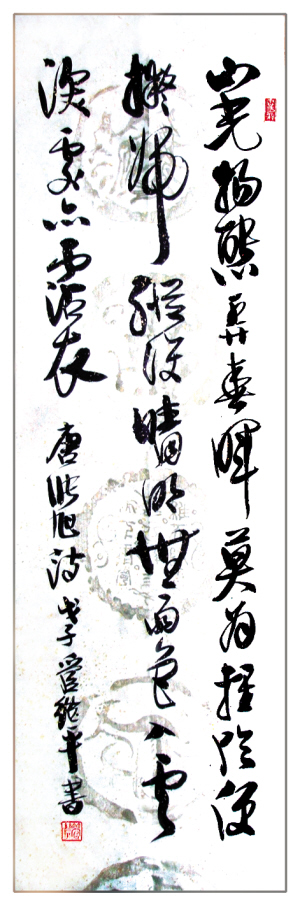 山光物態弄春暉莫为輕陰便
擬歸縱使晴明無雨色入雲
深處亦霑衣 唐張旭詩 戊子管繼平書